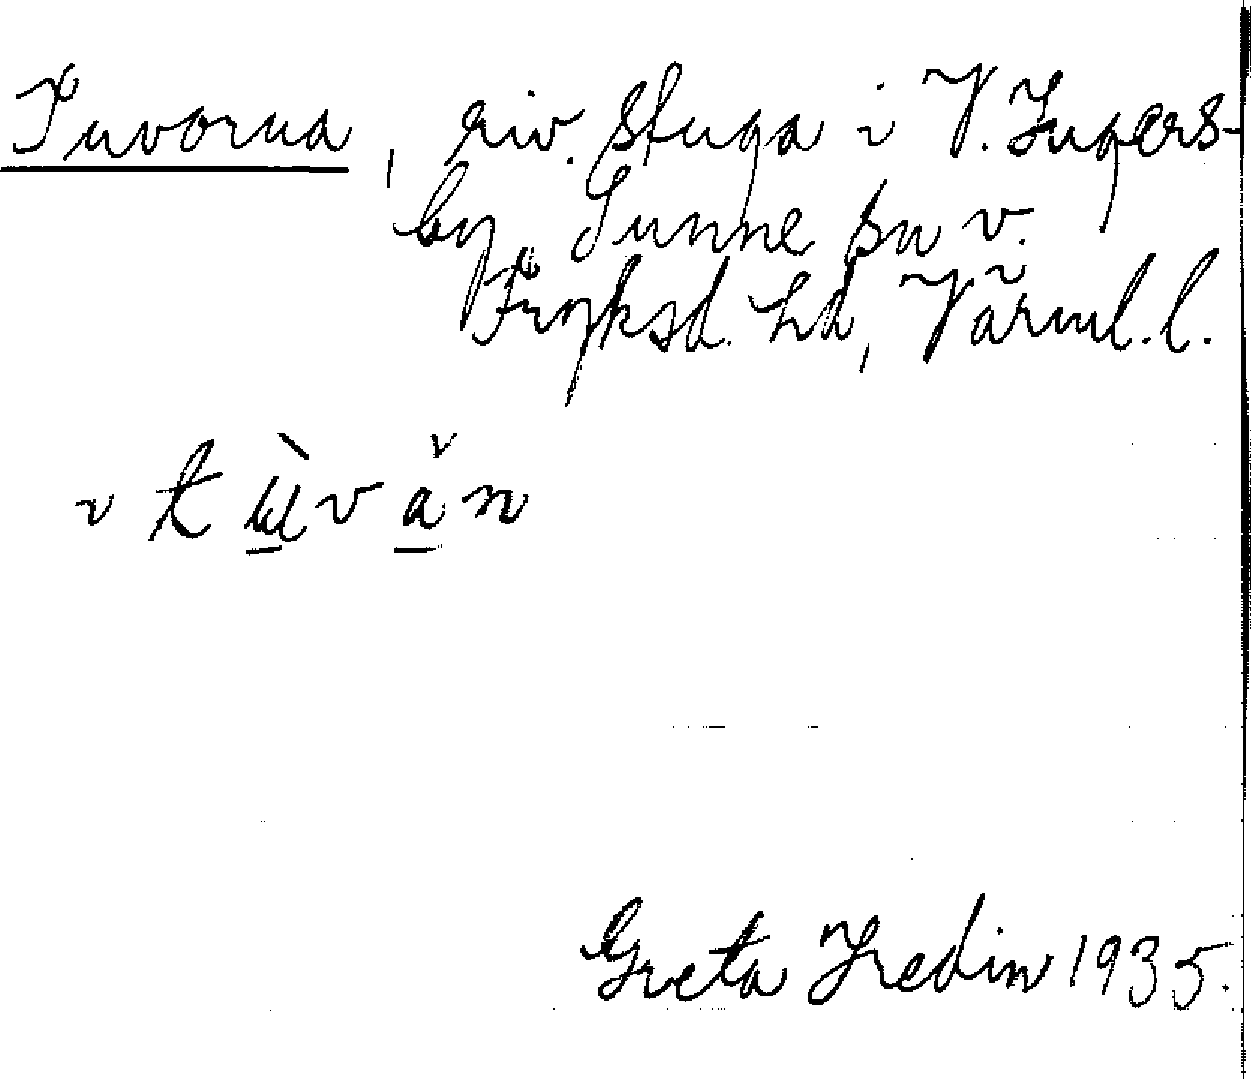 Tuvorna, riv. stuga i V. Ingers-
by Sunne sn v.
Fryksd. hd, Värml. l.
Greta Hedin 1935.